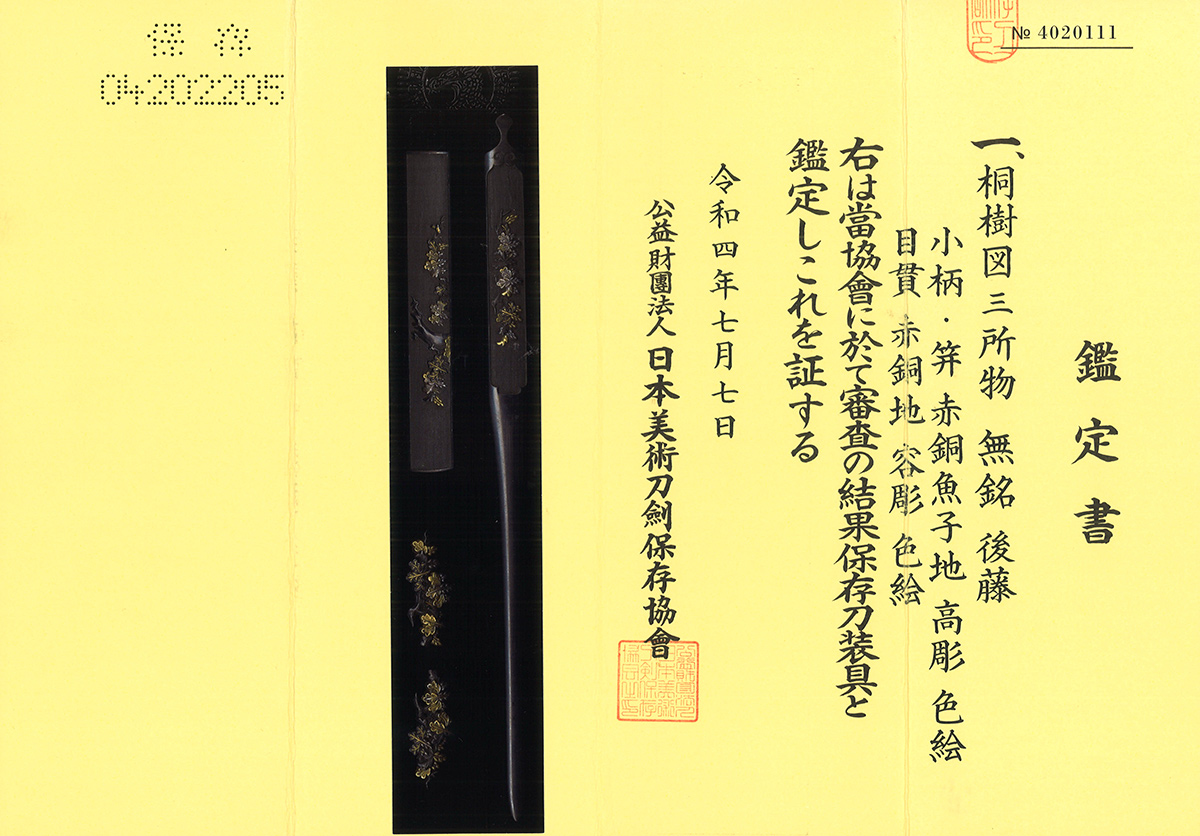 № 4020111
鑑定書
一、桐樹図三所物 無銘 後藤
小柄・笄 赤銅魚子地 高彫 色絵
目貫 赤銅地 容彫 色絵
右は當協會に於て審査の結果保存刀装具と
鑑定しこれを証する
令和四年七月七日
公益財團法人 日本美術刀剣保存協會
保存
04202205